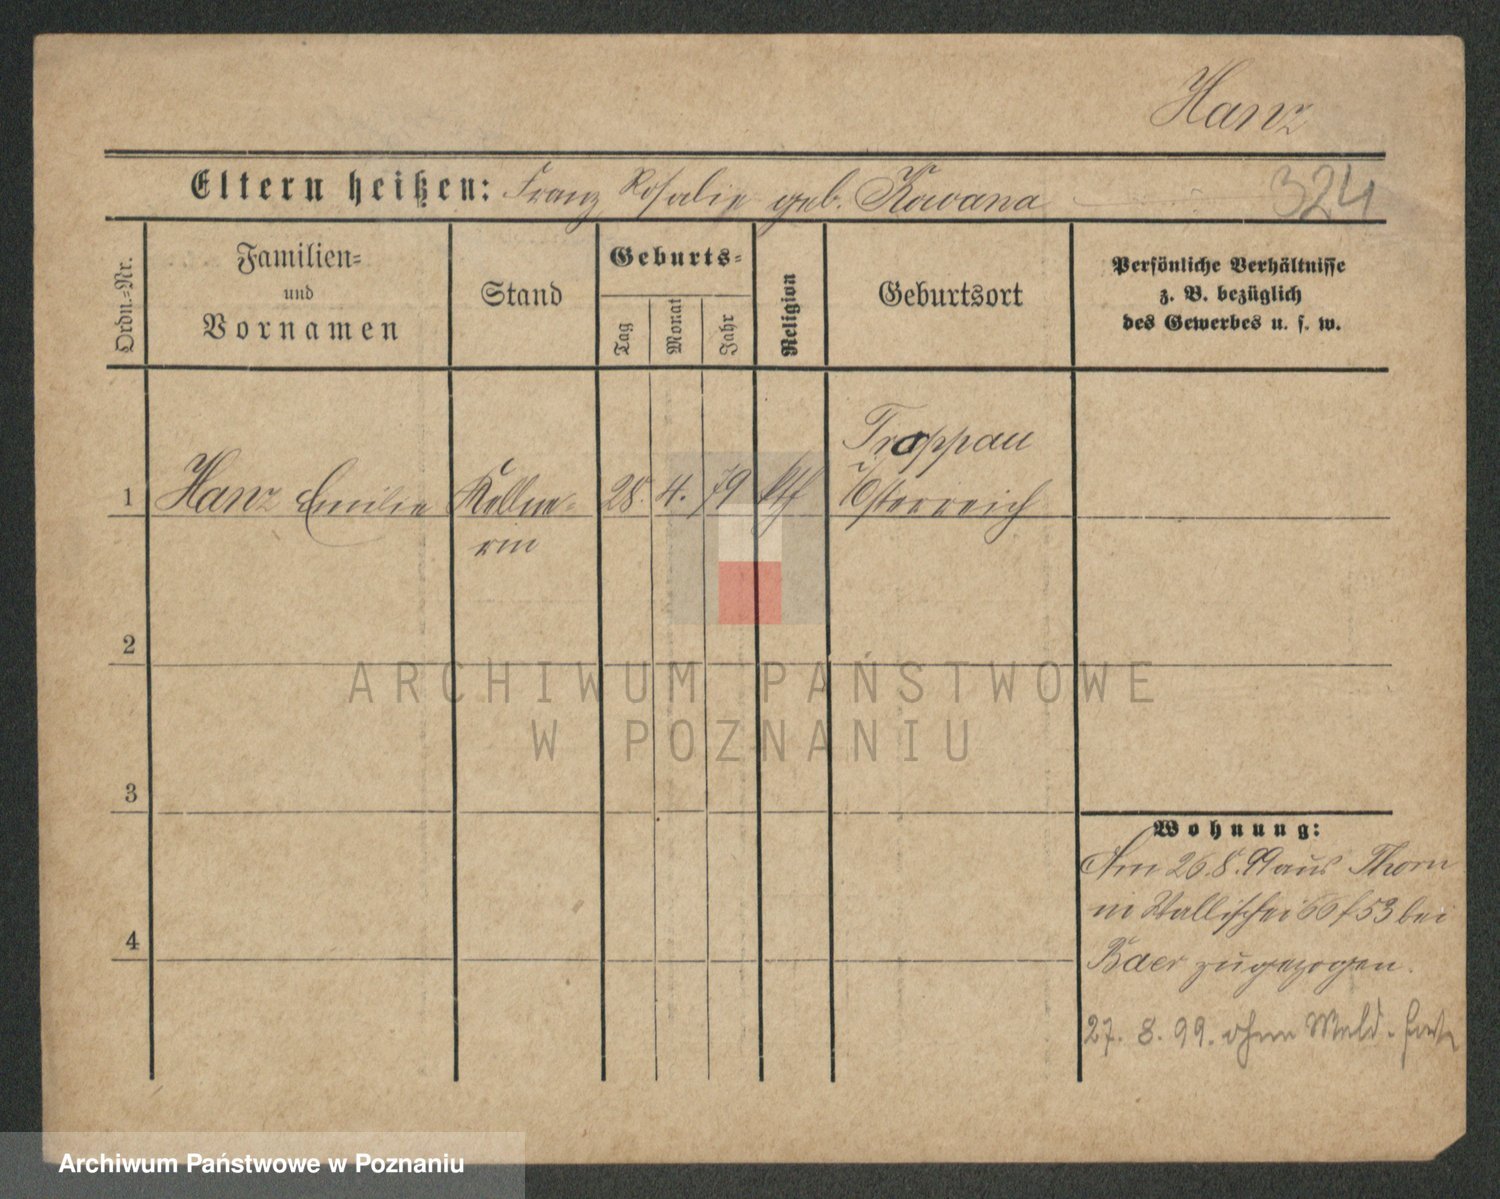 Hanz
Eltern heißen: Franz Rosalie geb. Kowana
324
Ordn.=Nr.
Familien=
und
Vornamen
Stand
Geburts=
Tag
Monat
Jahr
Religion
Geburtsort
Persönliche Verhältnisse
z. B. bezüglich
des Gewerbes u. s. w.
1
Hanz Emilie
Kellne=
rin
28. 4. 79
kth
Troppau
Österreich
2
3
4
Wohnung:
Am 26.8.99 aus Thorn
in Wallischei 53 bei
Baer zugezogen.
27. 8. 99. ohne Meld.
ARCHIWUM PAŃSTWOWE
W POZNANIU
Archiwum Państwowe w Poznaniu